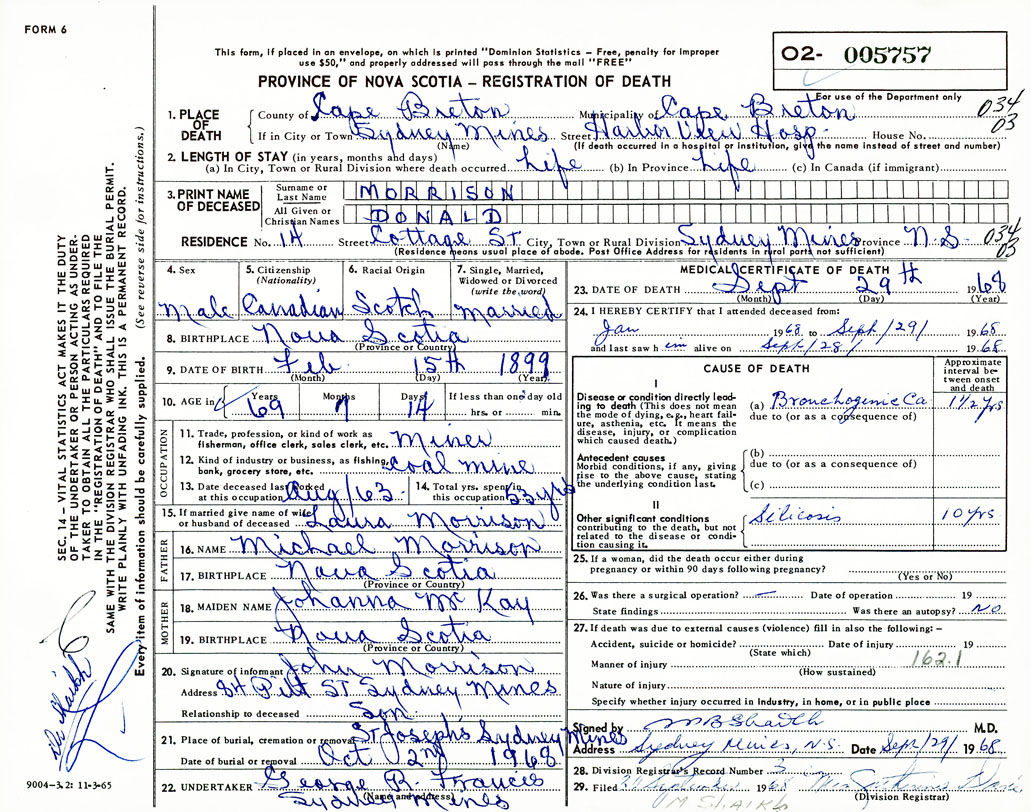 FORM 6
This form, if placed in an envelope, on which is printed "Dominion Statistics – Free, penalty for improper
use $50," and properly addressed will pass through the mail "FREE"
PROVINCE OF NOVA SCOTIA – REGISTRATION OF DEATH
02- 005757
For use of the Department only
034
03
1. PLACE OF DEATH
County of Cape Breton Municipality of Cape Breton
If in City or Town Sydney Mines Street Harbor View Hosp. House No.
(Name) (If death occurred in a hospital or institution, give the name instead of street and number)
2. LENGTH OF STAY (in years, months and days)
(a) In City, Town or Rural Division where death occurred Life (b) In Province Life (c) In Canada (if immigrant)
3. PRINT NAME OF DECEASED
Surname or Last Name MORRISON
All Given or Christian Names DONALD
RESIDENCE No. 14 Street Cottage St City, Town or Rural Division Sydney Mines Province N.S
034
03
(Residence means usual place of abode. Post Office Address for residents in rural parts not sufficient)
4. Sex
Male
5. Citizenship (Nationality)
Canadian
6. Racial Origin
Scotch
7. Single, Married, Widowed or Divorced (write the word)
Married
8. BIRTHPLACE Nova Scotia
(Province or Country)
9. DATE OF BIRTH Feb 15th 1899
(Month) (Day) (Year)
10. AGE in Years Months Days If less than one day old
69 7 14 hrs. or min.
OCCUPATION
11. Trade, profession, or kind of work as
fisherman, office clerk, sales clerk, etc. Miner
12. Kind of industry or business, as fishing,
bank, grocery store, etc. Coal mine
13. Date deceased last worked
at this occupation Aug/63
14. Total yrs. spent in
this occupation 53 yrs
15. If married give name of wife
or husband of deceased Laura Morrison
FATHER
16. NAME Michael Morrison
17. BIRTHPLACE Nova Scotia
(Province or Country)
MOTHER
18. MAIDEN NAME Johanna McKay
19. BIRTHPLACE Nova Scotia
(Province or Country)
20. Signature of informant John Morrison
Address 84 Pitt ST Sydney Mines
Relationship to deceased Son
21. Place of burial, cremation or removal St Joseph's Sydney Mines
Date of burial or removal Oct 2nd 1968
22. UNDERTAKER George R. Frances
(Name and address)
Sydney Mines
MEDICAL CERTIFICATE OF DEATH
23. DATE OF DEATH Sept 29th 1968
(Month) (Day) (Year)
24. I HEREBY CERTIFY that I attended deceased from:
Jan 1968 to Sept/29/ 1968
and last saw him alive on Sept/28/ 1968
CAUSE OF DEATH
Approximate interval between onset and death
I
Disease or condition directly leading to death (This does not mean the mode of dying, e.g., heart failure, asthenia, etc. It means the disease, injury, or complication which caused death.)
(a) Bronchogenic Ca 1 1/2 yrs
due to (or as a consequence of)
Antecedent causes
Morbid conditions, if any, giving rise to the above cause, stating the underlying condition last.
(b)
due to (or as a consequence of)
(c)
II
Other significant conditions
contributing to the death, but not related to the disease or condition causing it.
Silicosis 10 yrs
25. If a woman, did the death occur either during
pregnancy or within 90 days following pregnancy?
(Yes or No)
26. Was there a surgical operation? – Date of operation 19
State findings Was there an autopsy? NO
27. If death was due to external causes (violence) fill in also the following: –
Accident, suicide or homicide? Date of injury 19
(State which)
Manner of injury 162.1
(How sustained)
Nature of injury
Specify whether injury occurred in industry, in home, or in public place
Signed by M B Shaikh M.D.
Address Sydney Mines, N.S. Date Sep/29/ 1968
28. Division Registrar's Record Number
29. Filed 1968
(Division Registrar)
M SHAIKH
SEC. 14 – VITAL STATISTICS ACT MAKES IT THE DUTY
OF THE UNDERTAKER OR PERSON ACTING AS UNDER-
TAKER TO OBTAIN ALL THE PARTICULARS REQUIRED
IN THE "REGISTRATION OF DEATH" AND TO FILE THE
SAME WITH THE DIVISION REGISTRAR WHO SHALL ISSUE THE BURIAL PERMIT.
WRITE PLAINLY WITH UNFADING INK. THIS IS A PERMANENT RECORD.
Every item of information should be carefully supplied. (See reverse side for instructions.)
9004-3.2: 11-3-65